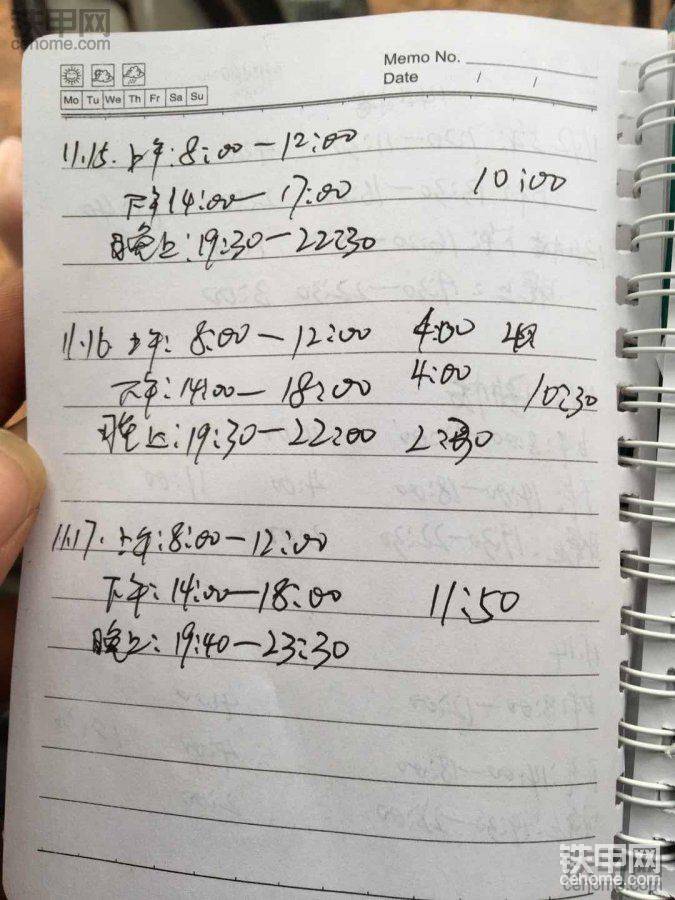 铁甲网
cehome.com
Memo No.
Date / /
Mo Tu We Th Fr Sa Su
11.15. 上午:8:00-12:00
下午14:00-17:00 10:00
晚上:19:30-22:30
11.16 上午: 8:00-12:00 4:00
下午:14:00-18:00 4:00 10:30
晚上:19:30-22:00 2:30
11.17. 上午:8:00-12:00
下午:14:00-18:00 11:50
晚上:19:40-23:30
铁甲网
cehome.com